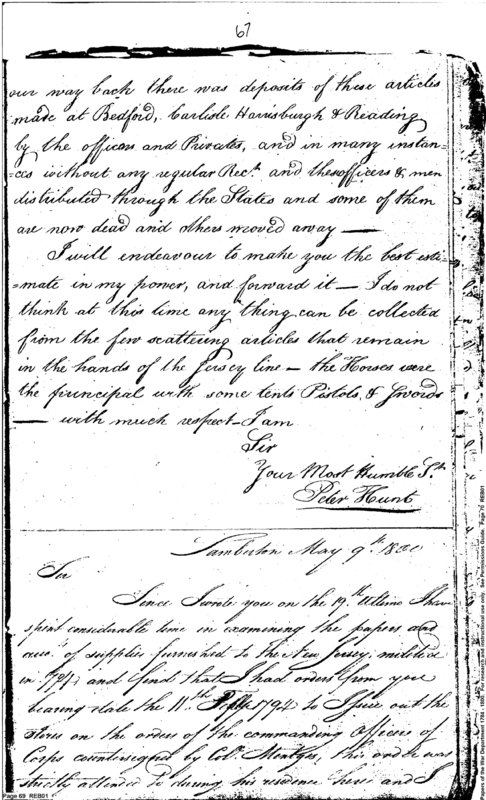 67
our way back there was deposits of these articles
made at Bedford, Carlisle Harrisburgh & Reading
by the officers and Privates, and in many instan-
-ces without any regular Rect. and the officers & men
distributed through the States and some of them
are now dead and others moved away —
I will endeavour to make you the best esti-
-mate in my power, and forward it — I do not
think at this time any thing can be collected
from the few scattering articles that remain
in the hands of the Jersey line — the Horses were
the principal with some tents Pistols, & Swords
— with much respect — I am
Sir
Your Most Humble St.
Peter Hunt
Lamberton May 9th. 1800
Sir
Since I wrote you on the 19th Ultimo I have
spent considerable time in examining the papers and
of supplies furnished to the New Jersey militia
in 1794 and find that I had orders from you
bearing date the 11th 1794 to Issue out the
stores on the orders of the commanding Officers of
Corps countersigned by Colo. Mentges, this order was
strictly attended to during his residence here and I
Page 69 REB01
Papers of the War Department 1784 - 1800. For research and educational use only. See Permissions Guide. Page 70 REB01